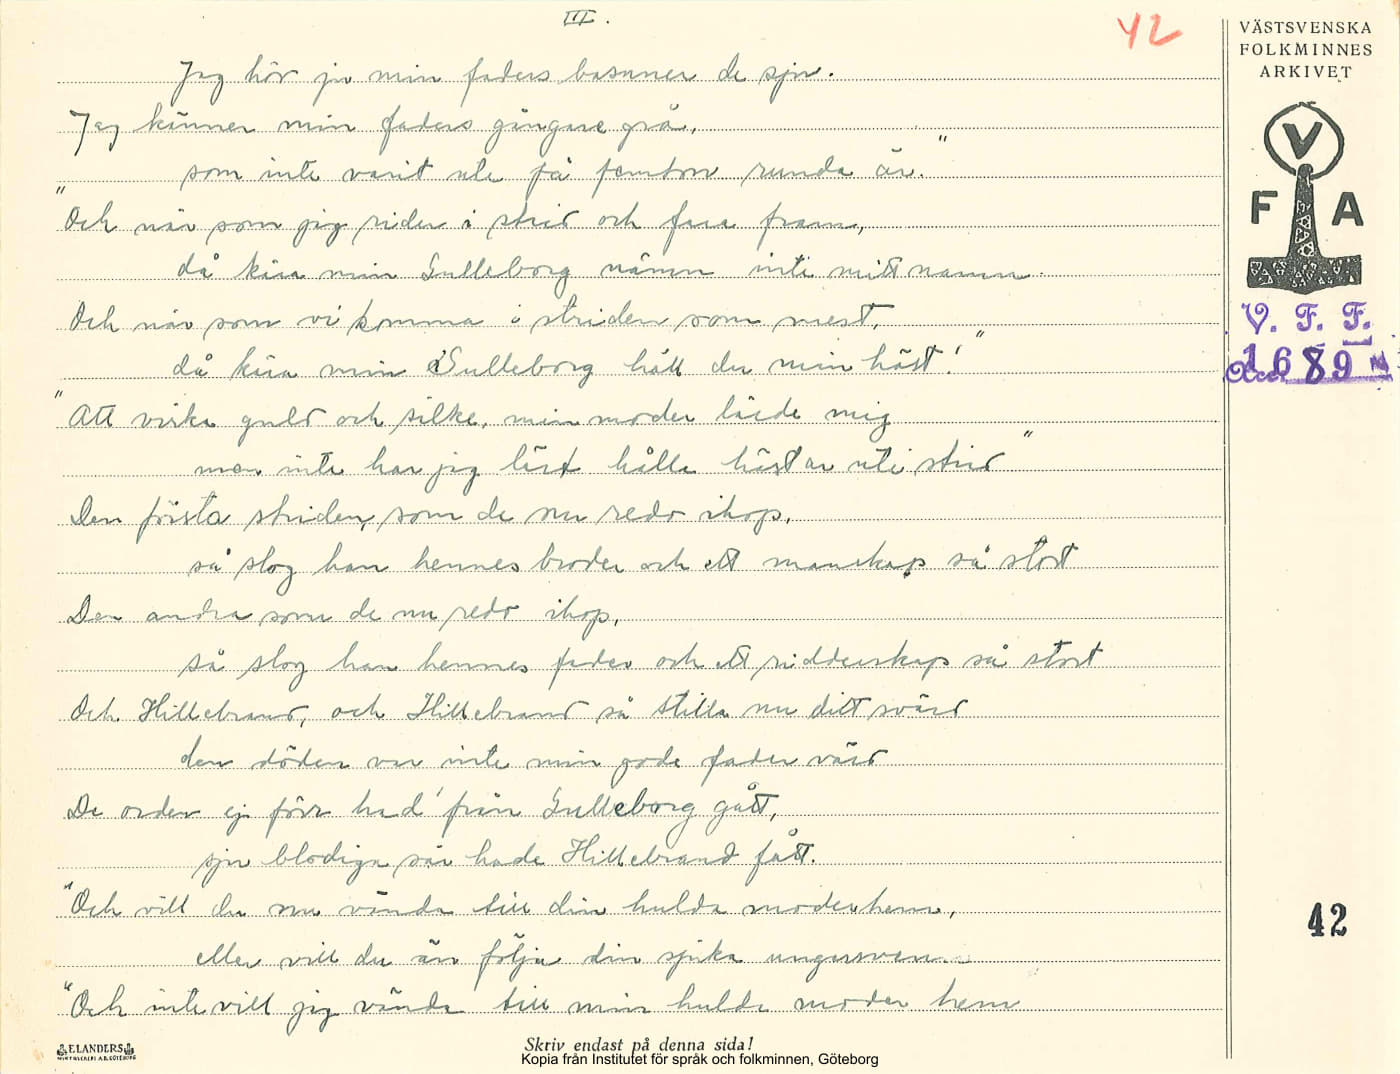 III.
42
VÄSTSVENSKA
FOLKMINNES
ARKIVET
V
F A
V. F. F.
Acc. 1689
Jag hör ju min faders basuner de sju.
Jag känner min faders gångare grå,
som inte varit ute på femton runda år."
"Och när som jag rider i strid och fara fram,
då kära min Gulleborg nämn inte mitt namn
Och när som vi komma i striden som mest,
då kära min Gulleborg håll du min häst!"
"Att virka guld och silke, min moder lärde mig
men inte har jag lärt hålla hästar uti strid"
Den första striden, som de nu redo ihop,
så slog han hennes broder och ett manskap så stort
Den andra som de nu redo ihop,
så slog han hennes fader och ett ridderskap så stort
Och Hillebrand, och Hillebrand så stilla nu ditt svärd
den döden var inte min gode fader värd
De orden ej förr had' från Gulleborg gått,
sju blodiga sår hade Hillebrand fått.
"Och vill du nu vända till din hulda moder hem,
eller vill du än följa din sjuka ungersven
"Och inte vill jag vända till min hulda moder hem
42
ELANDERS
Skriv endast på denna sida!
Kopia från Institutet för språk och folkminnen, Göteborg